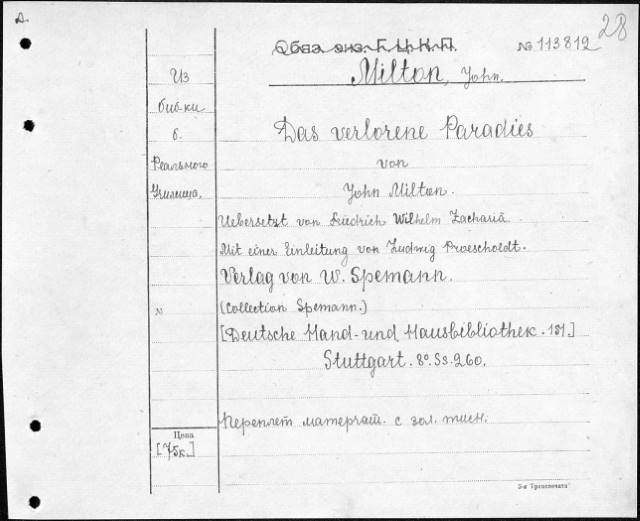 28
№ 113812
Milton, John.
Из
биб-ки
б.
Реального
Училища.
Das verlorene Paradies
von
John Milton.
Uebersetzt von Friedrich Wilhelm Zachariä
Mit einer Einleitung von Ludwig Proescholdt.
Verlag von W. Spemann.
№
(Collection Spemann.)
[Deutsche Hand- und Hausbibliothek. 131.]
Stuttgart. 8°. Ss. 260.
Переплет матерчат. с зол. тисн.
Цена
[75к.]